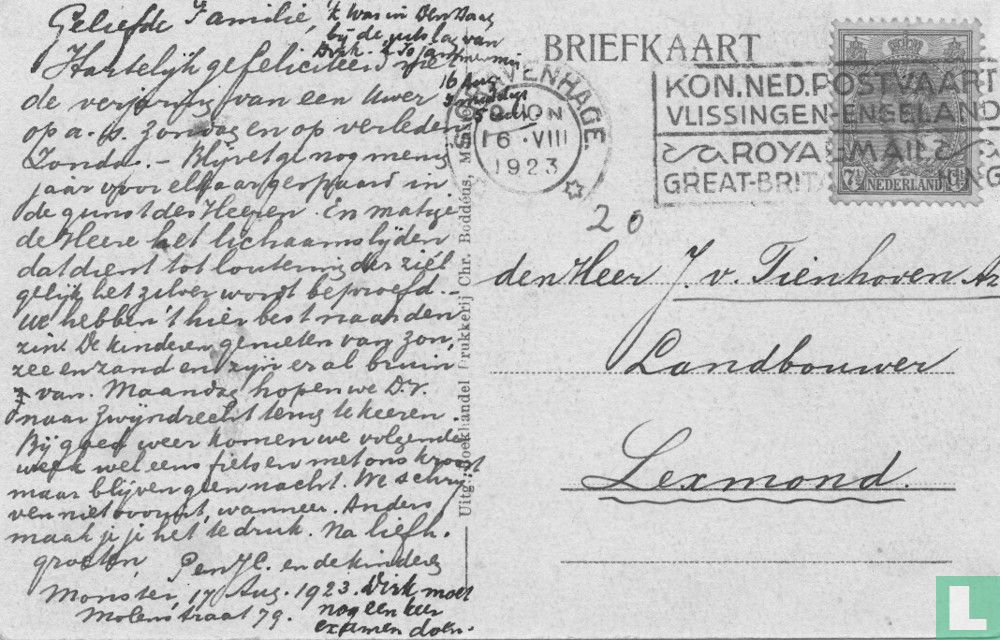 Geliefde Familie, 'k was in Den Haag
bij de uitsla van
Dirk.
Hartelijk gefeliciteerd
16 Aug
de verjaring van een Uwer
op a.s. zondag en op verleden
Zondag. – Blijve ge nog menig
jaar voor elkaar gespaard in
de gunst des Heeren. En matige
de Heere het lichaamslijden
dat dient tot loutering der ziel
gelijk het zilver wordt beproefd. –
We hebben 't hier best naar den
zin. De kinderen genieten van zon,
zee en zand en zijn er al bruin
van. Maandag hopen we D.V.
naar Zwijndrecht terug te keeren.
Bij goed weer komen we volgende
week wel eens fietsen met ons kroost
maar blijven geen nacht. We schrij
ven niet vooruit, wanneer. Anders
maak je je het te druk. Na liefh.
groeten
P en JC. en de kinders
Monster, 17 Aug. 1923. Dirk moet
Molenstraat 79. nog een keer
examen doen.
Uitg.: Boekhandel Drukkerij Chr. Boddéus,
BRIEFKAART
'S GRAVENHAGE
16 VIII
1923
KON. NED. POSTVAART
VLISSINGEN-ENGELAND
ROYAL MAIL
GREAT-BRIT
7½ NEDERLAND
20
den Heer J. v. Tienhoven Az
Landbouwer
Lexmond.
L